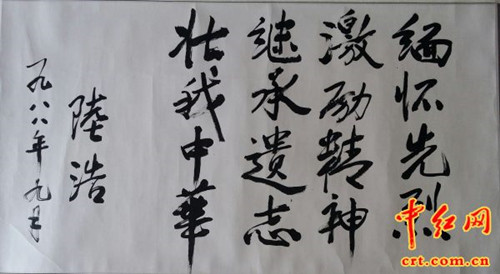 缅怀先烈
激励精神
继承遗志
壮我中華
陸浩
一九八八年九月
中红网
crt.com.cn